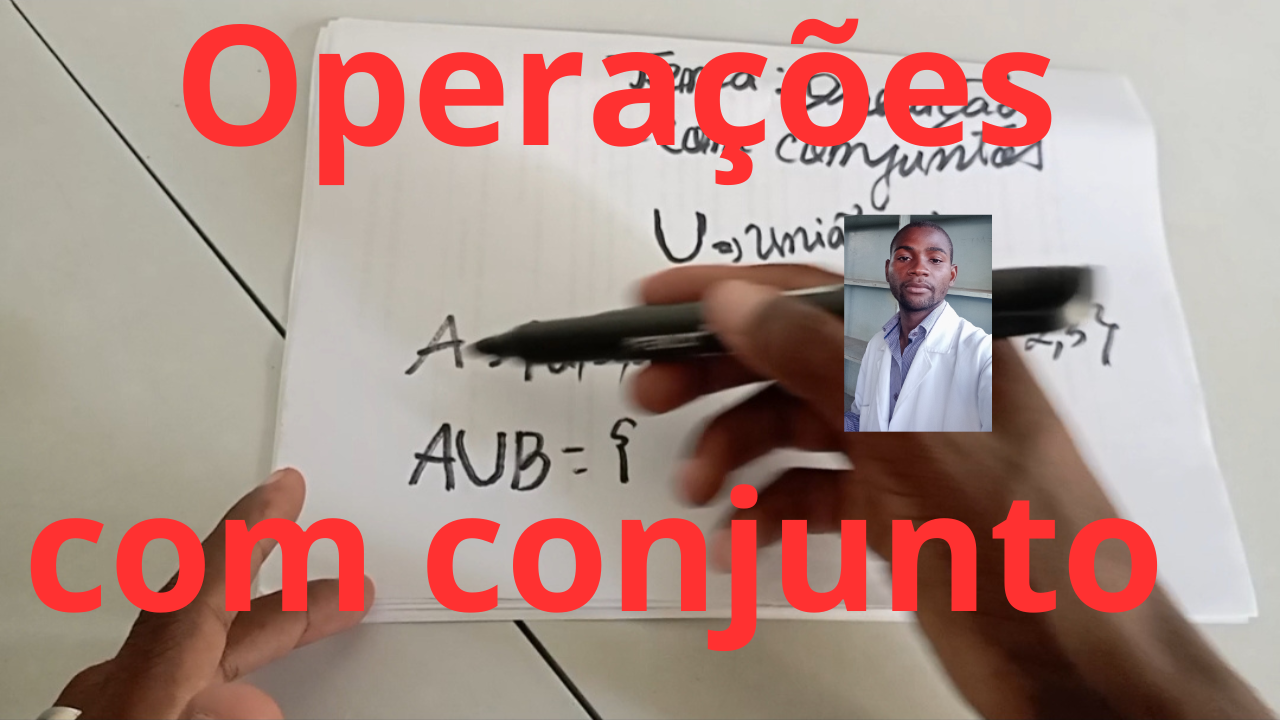 Operações
com conjuntos
U => união
A
2,5}
AUB = {
com conjunto